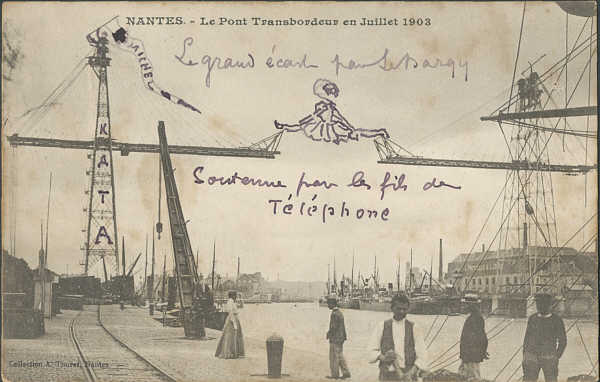 NANTES. - Le Pont Transbordeur en Juillet 1903
Le grand écart par Le Bargy
KATA
Soutenue par les fils de
Téléphone
Collection A. Touret, Nantes